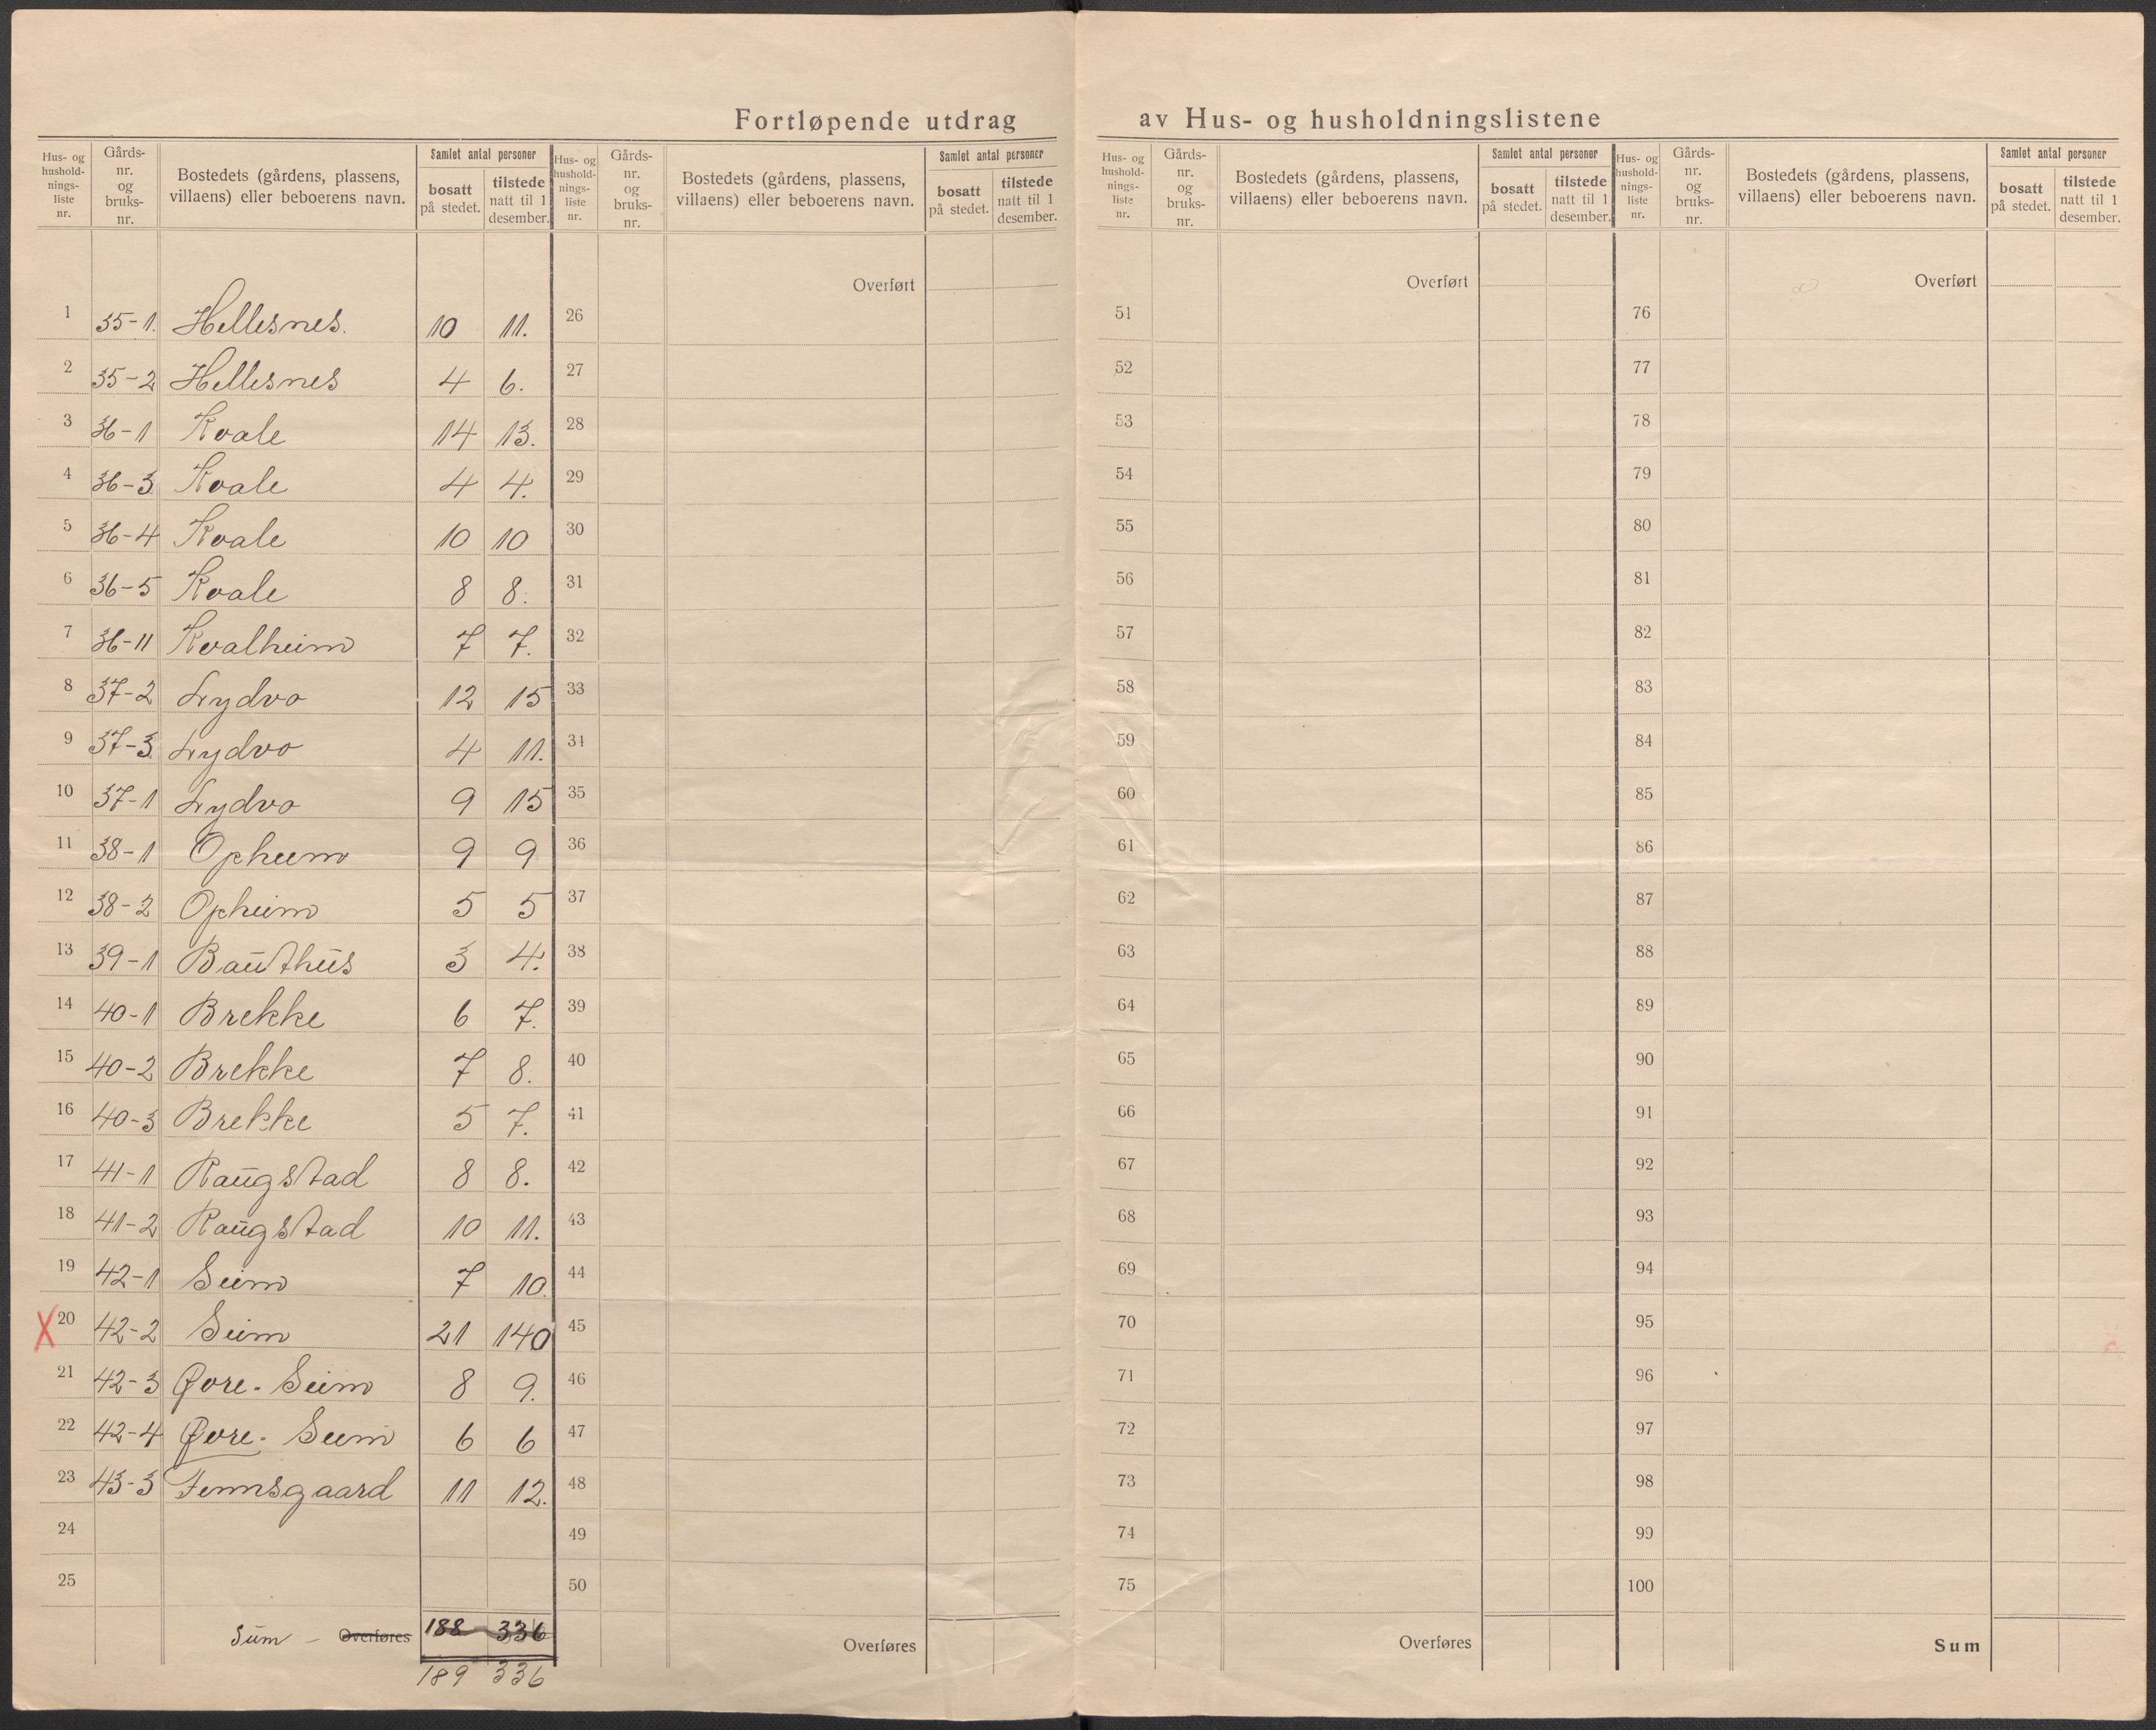 Fortløpende utdrag av Hus- og husholdningslistene
Hus- og hushold-nings-liste nr. Gårds-nr. og bruks-nr. Bostedets (gårdens, plassens, villaens) eller beboerens navn. Samlet antal personer bosatt på stedet. tilstede natt til 1 desember.
1 35-1. Hellesnes. 10 11.
2 35-2 Hellesnes 4 6.
3 36-1 Kvale 14 13.
4 36-3 Kvale 4 4.
5 36-4 Kvale 10 10
6 36-5 Kvale 8 8.
7 36-11 Kvalheim 7 7.
8 37-2 Lydvo 12 15
9 37-3 Lydvo 4 11.
10 37-1 Lydvo 9 15
11 38-1 Opheim 9 9
12 38-2 Opheim 5 5
13 39-1 Bauthus 3 4.
14 40-1 Brekke 6 7.
15 40-2 Brekke 7 8.
16 40-3 Brekke 5 7.
17 41-1 Raugstad 8 8.
18 41-2 Raugstad 10 11.
19 42-1 Seim 7 10.
X 20 42-2 Seim 21 140
21 42-3 Øvre-Seim 8 9.
22 42-4 Øvre-Seim 6 6
23 43-3 Finnsgaard 11 12.
24
25
Sum - Overføres 188 336
189 336
Hus- og hushold-nings-liste nr. Gårds-nr. og bruks-nr. Bostedets (gårdens, plassens, villaens) eller beboerens navn. Samlet antal personer bosatt på stedet. tilstede natt til 1 desember.
Overført
26
27
28
29
30
31
32
33
34
35
36
37
38
39
40
41
42
43
44
45
46
47
48
49
50
Overføres
Hus- og hushold-nings-liste nr. Gårds-nr. og bruks-nr. Bostedets (gårdens, plassens, villaens) eller beboerens navn. Samlet antal personer bosatt på stedet. tilstede natt til 1 desember.
Overført
51
52
53
54
55
56
57
58
59
60
61
62
63
64
65
66
67
68
69
70
71
72
73
74
75
Overføres
Hus- og hushold-nings-liste nr. Gårds-nr. og bruks-nr. Bostedets (gårdens, plassens, villaens) eller beboerens navn. Samlet antal personer bosatt på stedet. tilstede natt til 1 desember.
Overført
76
77
78
79
80
81
82
83
84
85
86
87
88
89
90
91
92
93
94
95
96
97
98
99
100
Sum